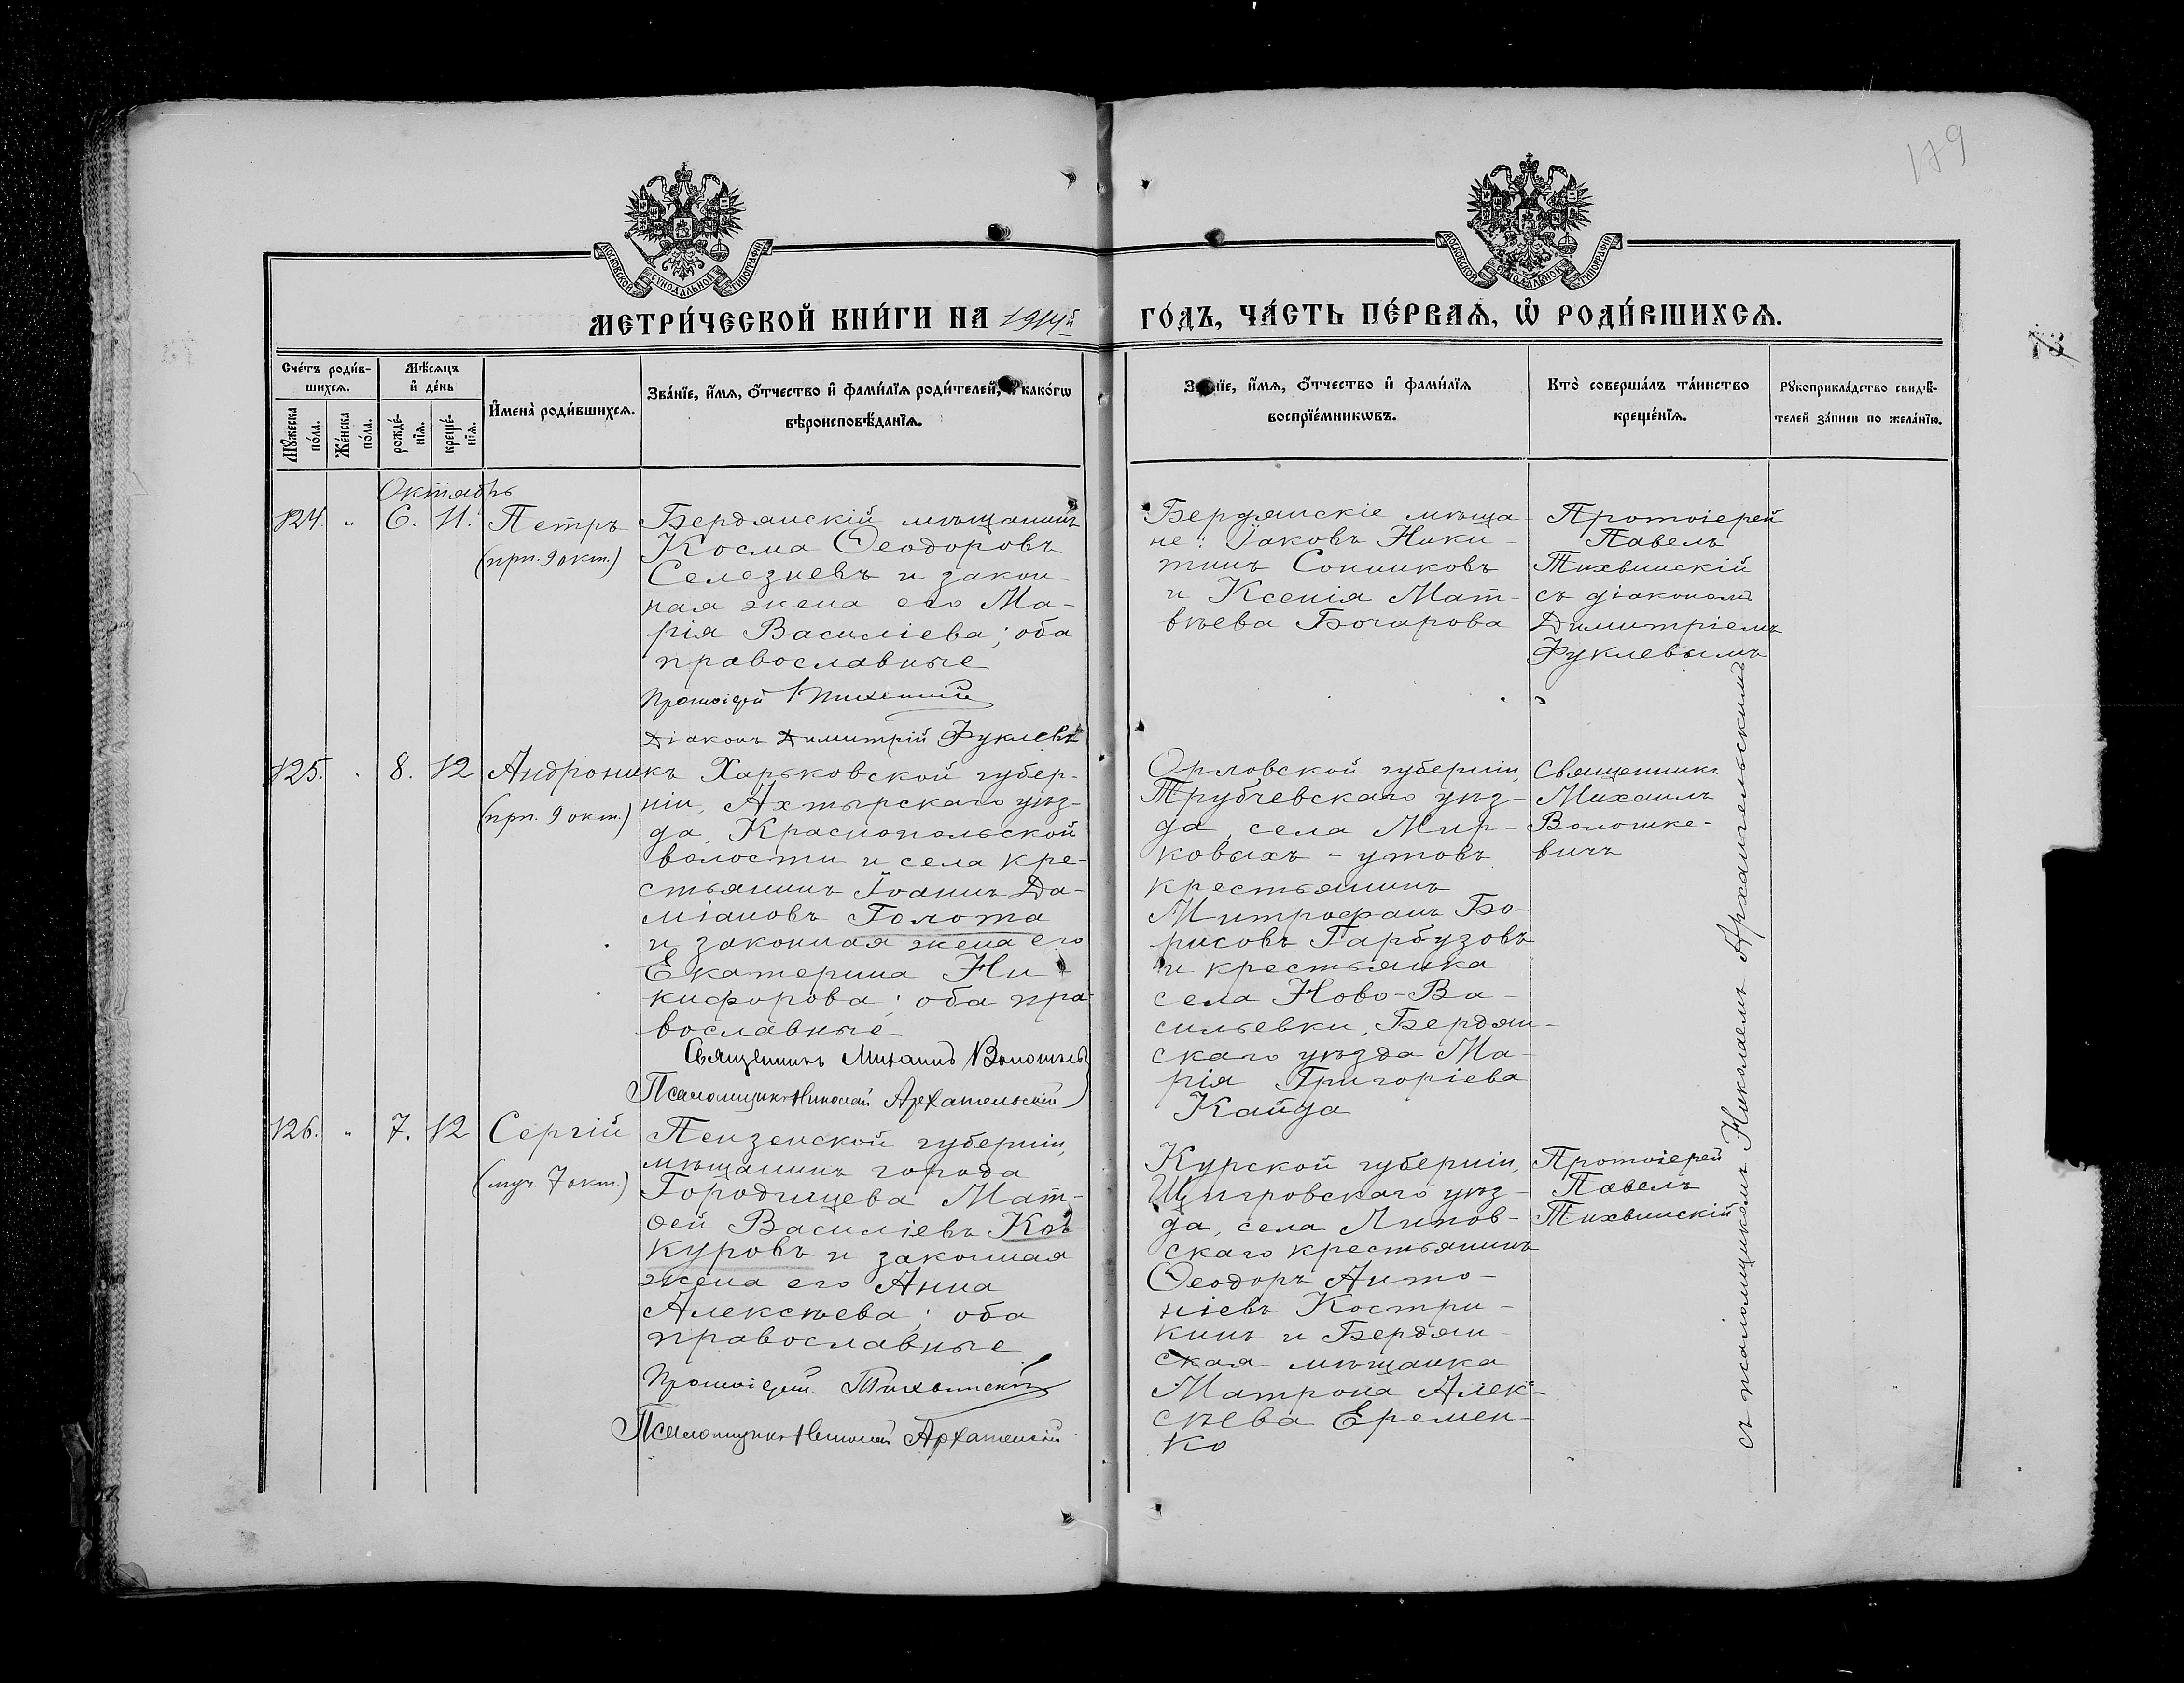 179
МОСКОВСКОЙ СѴНОДАЛЬНОЙ ТИПОГРАФІИ
МОСКОВСКОЙ СѴНОДАЛЬНОЙ ТИПОГРАФІИ
МЕТРИ́ЧЕСКОЙ КНИ́ГИ НА 1914й
ГО́ДЪ, ЧА́СТЬ ПЕ́РВАЯ, Ѡ҆ РОДИ́ВШИХСѦ.
73
Сче́тъ роди́в-
шихсѧ.
Мꙋ́жеска по́ла.
Же́нска по́ла.
Мѣ́сѧцъ и҆ де́нь
рожде́-нїѧ.
креще́-нїѧ.
И҆мена̀ роди́вшихсѧ.
Зва́нїе, и҆́мѧ, ѻ҆́тчество и҆ фами́лїѧ роди́телей, и҆ како́гѡ
вѣроисповѣ́данїѧ.
Зва́нїе, и҆́мѧ, ѻ҆́тчество и҆ фами́лїѧ
воспрїе́мникѡвъ.
Кто̀ соверша́лъ та́инство
креще́нїѧ.
Рꙋкоприкла́дство свидѣ́-
телей за́писи по жела́нїю.
Октябрь
124. " 6. 11. Петръ
(прп. 9 окт.)
Бердянскій мѣщанинъ
Косма Ѳеодоровъ
Селезневъ и закон-
ная жена его Ма-
рія Василіева; оба
православные
Протоіерей П Тихвинскій
Діаконъ Димитрій Фуклевъ
Бердянскіе мѣща-
не: Іаковъ Ники-
тинъ Сонниковъ
и Ксенія Мат-
вѣева Бочарова
Протоіерей
Павелъ
Тихвинскій
съ діакономъ
Димитріемъ
Фуклевымъ
125. " 8. 12 Андроникъ
(прп. 9 окт.)
Харьковской губер-
ніи, Ахтырскаго уѣз-
да, Краснопольской
волости и села кре-
стьянинъ Іоаннъ Да-
міановъ Голота
и законная жена его
Екатерина Ни-
кифорова; оба пра-
вославные
Священникъ Михаилъ Волошкевичъ
Псаломщикъ Николай Архангельскій
Орловской губерніи,
Трубчевскаго уѣз-
да, села Мир-
ковыхъ-утовъ
крестьянинъ
Митрофанъ Бо-
рисовъ Гарбузовъ
и крестьянка
села Ново-Ва-
сильевки, Бердян-
скаго уѣзда Ма-
рія Григоріева
Кайда
Священникъ
Михаилъ
Волошке-
вичъ
126. " 7. 12 Сергій
(муч. 7 окт.)
Пензенской губерніи,
мѣщанинъ города
Городищева Мат-
ѳей Василіевъ Кош-
куровъ и законная
жена его Анна
Алексѣева; оба
православные
Протоіерей Тихвинскій
Псаломщикъ Николай Архангельскій
Курской губерніи,
Щигровскаго уѣз-
да, села Липов-
скаго крестьянинъ
Ѳеодоръ Анто-
ніевъ Костри-
кинъ и Бердян-
ская мѣщанка
Матрона Алек-
сѣева Еремен-
ко
Протоіерей
Павелъ
Тихвинскій
съ псаломщикомъ Николаемъ Архангельскимъ